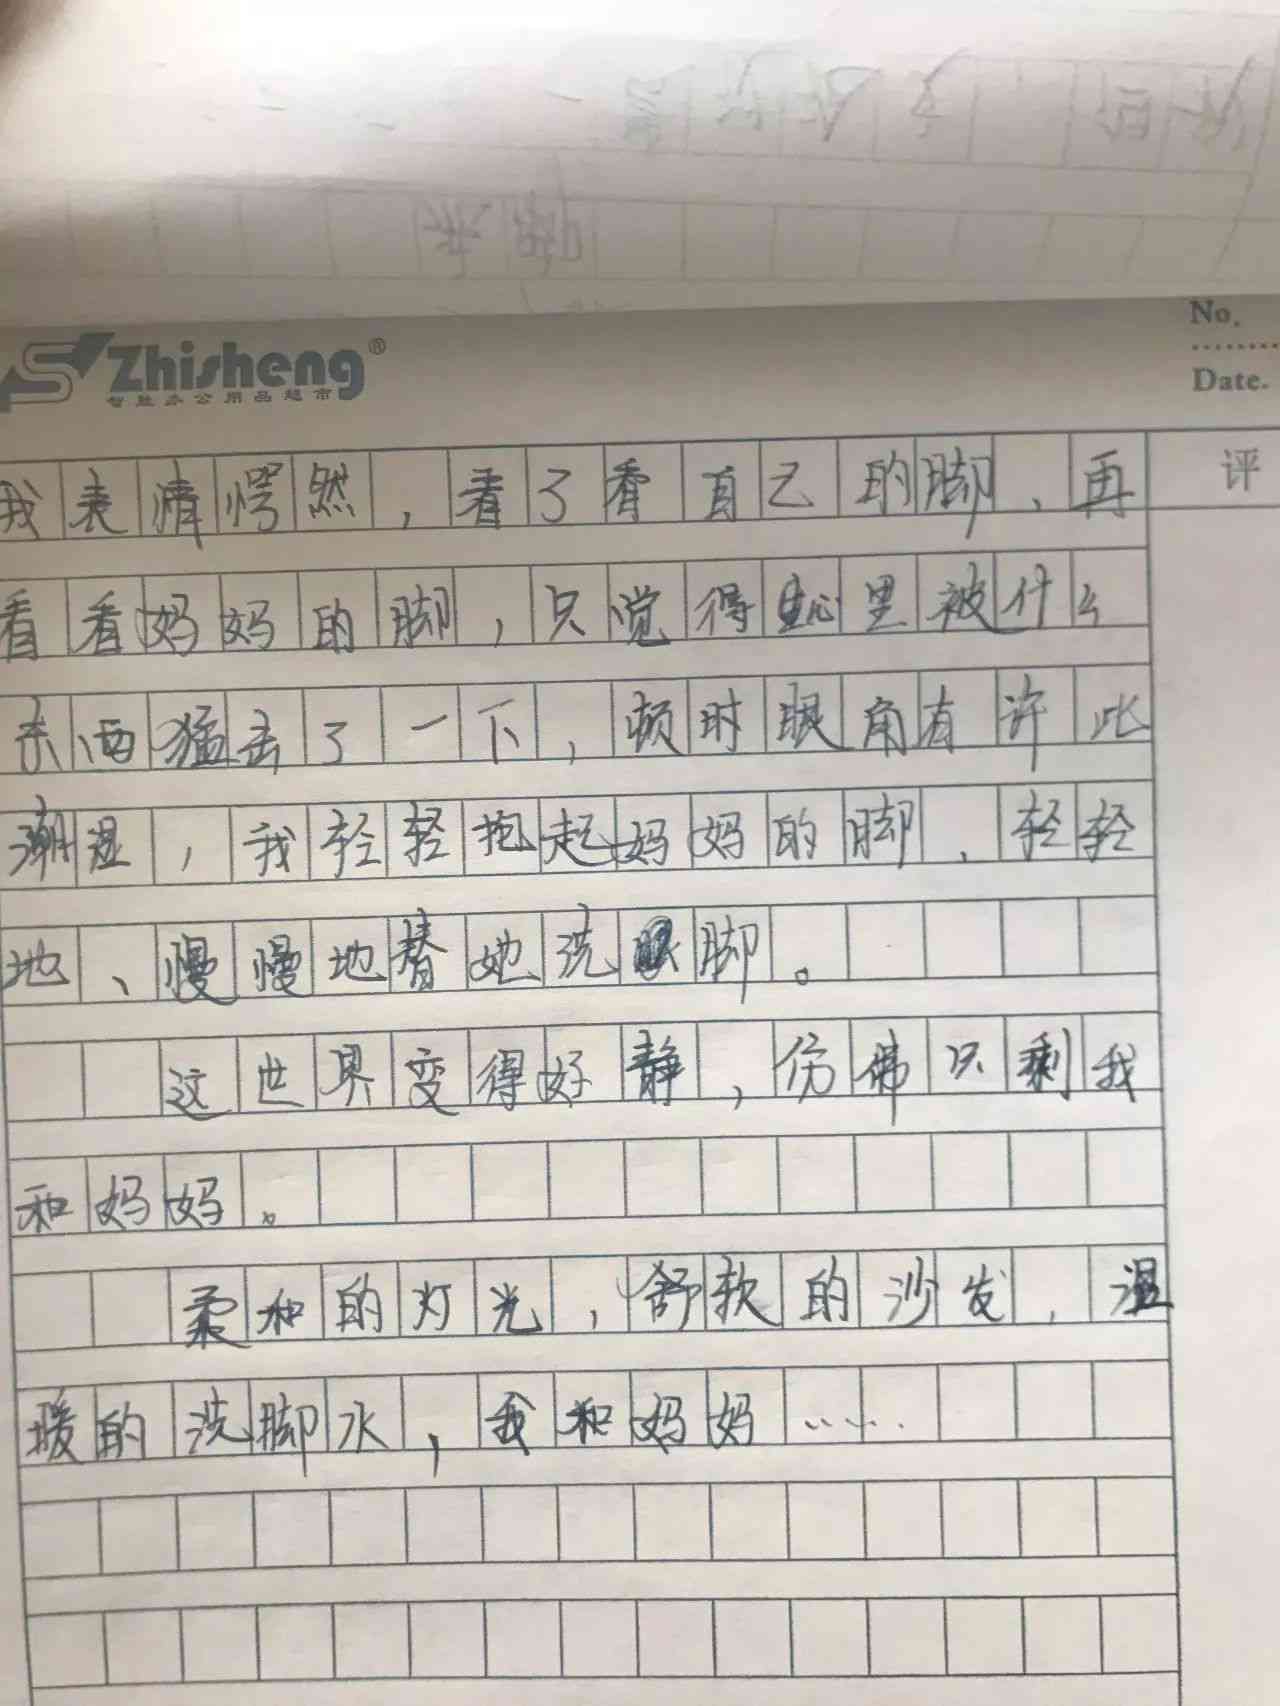 Zhisheng®
智胜办公用品超市
No.
Date.
评
我表情愕然，看了看自己的脚，再
看看妈妈的脚，只觉得心里被什么
东西猛击了一下，顿时眼角有许些
潮湿，我轻轻抱起妈妈的脚，轻轻
地、慢慢地替她洗脚。
这世界变得好静，仿佛只剩我
和妈妈。
柔和的灯光，舒软的沙发，温
暖的洗脚水，我和妈妈……